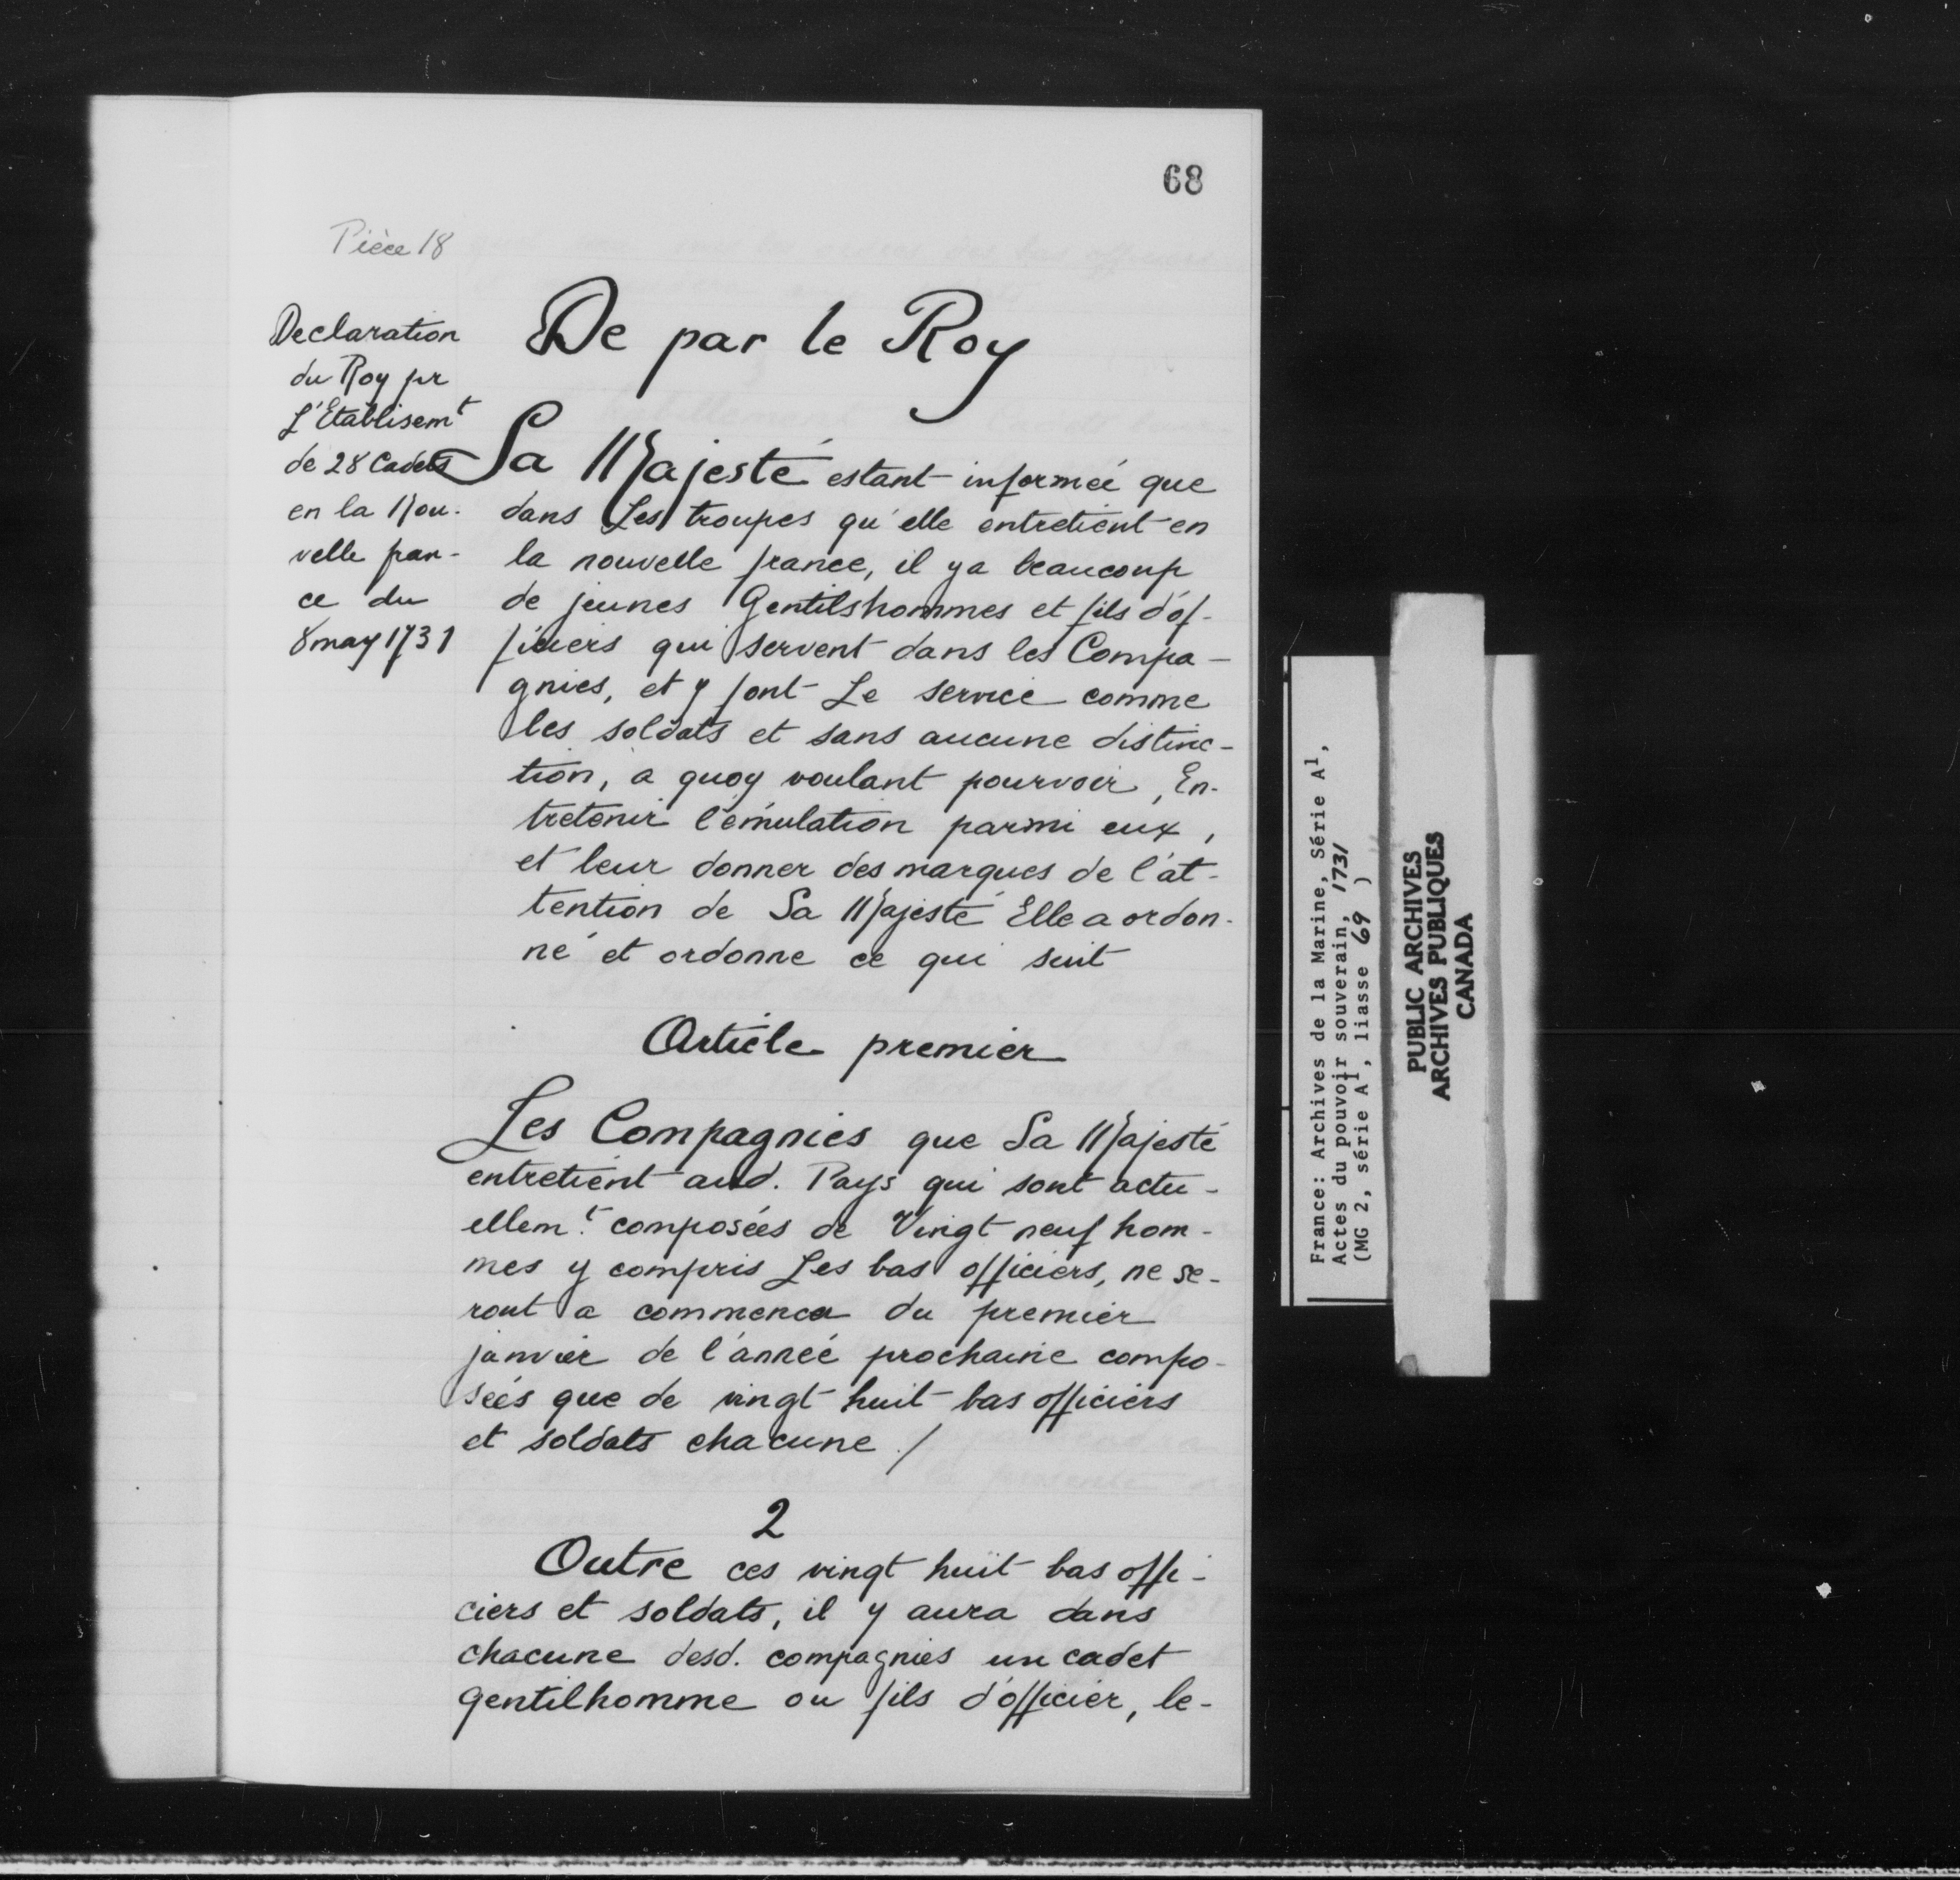 68
Pièce 18
Declaration
du Roy pr
L'Etablisemt
de 28 Cadets
en la Nou-
velle fran-
ce du
8 may 1731
De par le Roy
Sa Majesté estant informée que
dans Les troupes qu'elle entretient en
la nouvelle france, il y a beaucoup
de jeunes Gentilshommes et fils d'of-
ficiers qui servent dans les Compa-
gnies, et y font Le service comme
les soldats et sans aucune distinc-
tion, a quoy voulant pourvoir, En-
tretenir l'émulation parmi eux,
et leur donner des marques de l'at-
tention de Sa Majesté Elle a ordon-
né et ordonne ce qui suit
Article premier
Les Compagnies que Sa Majesté
entretient aud. Pays qui sont actu-
ellem.t composées de Vingt neuf hom-
mes y compris Les bas officiers, ne se-
ront a commencer du premier
janvier de l'année prochaine compo-
sées que de vingt huit bas officiers
et soldats chacune ./
2
Outre ces vingt huit bas offi-
ciers et soldats, il y aura dans
chacune desd. compagnies un cadet
gentilhomme ou fils d'officier, le-
France: Archives de la Marine, Série A1,
Actes du pouvoir souverain, 1731
(MG 2, série A1, liasse 69 )
PUBLIC ARCHIVES
ARCHIVES PUBLIQUES
CANADA